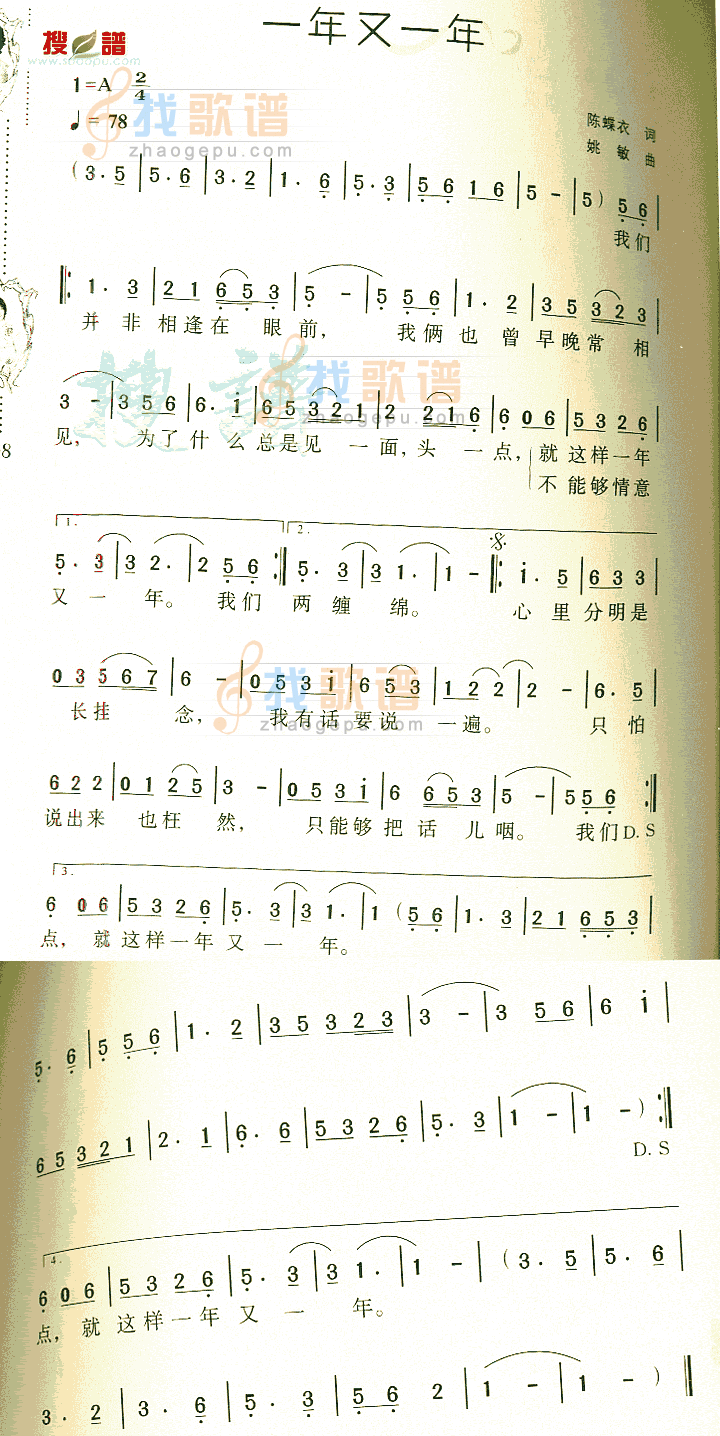 一年又一年
搜谱
www.sooopu.com
1=A 2/4
♩= 78
找歌谱
zhaogepu.com
陈蝶衣 词
姚敏 曲
(3·5|5·6|3·2|1·6|5·3|5616|5-|5)56|
我们
‖:1·3|21653|5-|556|1·2|35323|
并非相逢在眼前，我俩也曾早晚常相
3-|356|6·i|65321|2 216|606|5326|
见，为了什么总是见一面,头一点,就这样一年
不能够情意
1. 2.
5·3|32·|256:‖5·3|31·|1-‖:i·5|633|
又一年。我们两缠绵。心里分明是
03567|6-|053i|653|122|2-|6·5|
长挂念，我有话要说一遍。只怕
622|0125|3-|053i|6 653|5-|556:‖
说出来也枉然，只能够把话儿咽。我们D.S
3.
606|5326|5·3|31·|1(56|1·3|21653|
点，就这样一年又一年。
5·6|556|1·2|35323|3-|356|6i|
65321|2·1|6·6|5326|5·3|1-|1-):‖
D.S
4.
606|5326|5·3|31·|1-|(3·5|5·6|
点，就这样一年又一年。
3·2|3·6|5·3|562|1-|1-)‖
8